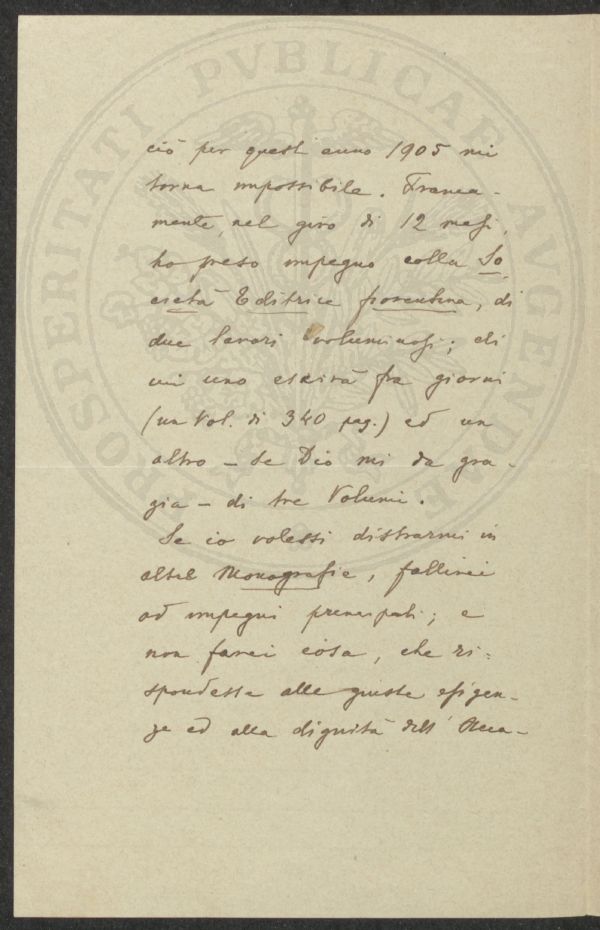 PROSPERITATI PVBLICAE AVGENDAE
ciò per quest'anno 1905 mi
torna impossibile. Franca-
mente, nel giro di 12 mesi,
ho preso impegno colla So
cietà Editrice fiorentina, di
due lavori voluminosi; di
cui uno escirà fra giorni
(un Vol. di 340 pag.) ed un
altro – se Dio mi da gra-
zia – di tre Volumi.
Se io volessi distrarmi in
altre Monografie, fallirei
ad impegni principali; e
non farei cosa, che ri=
spondesse alle giuste esigen-
ze ed alla dignità dell'Acca-